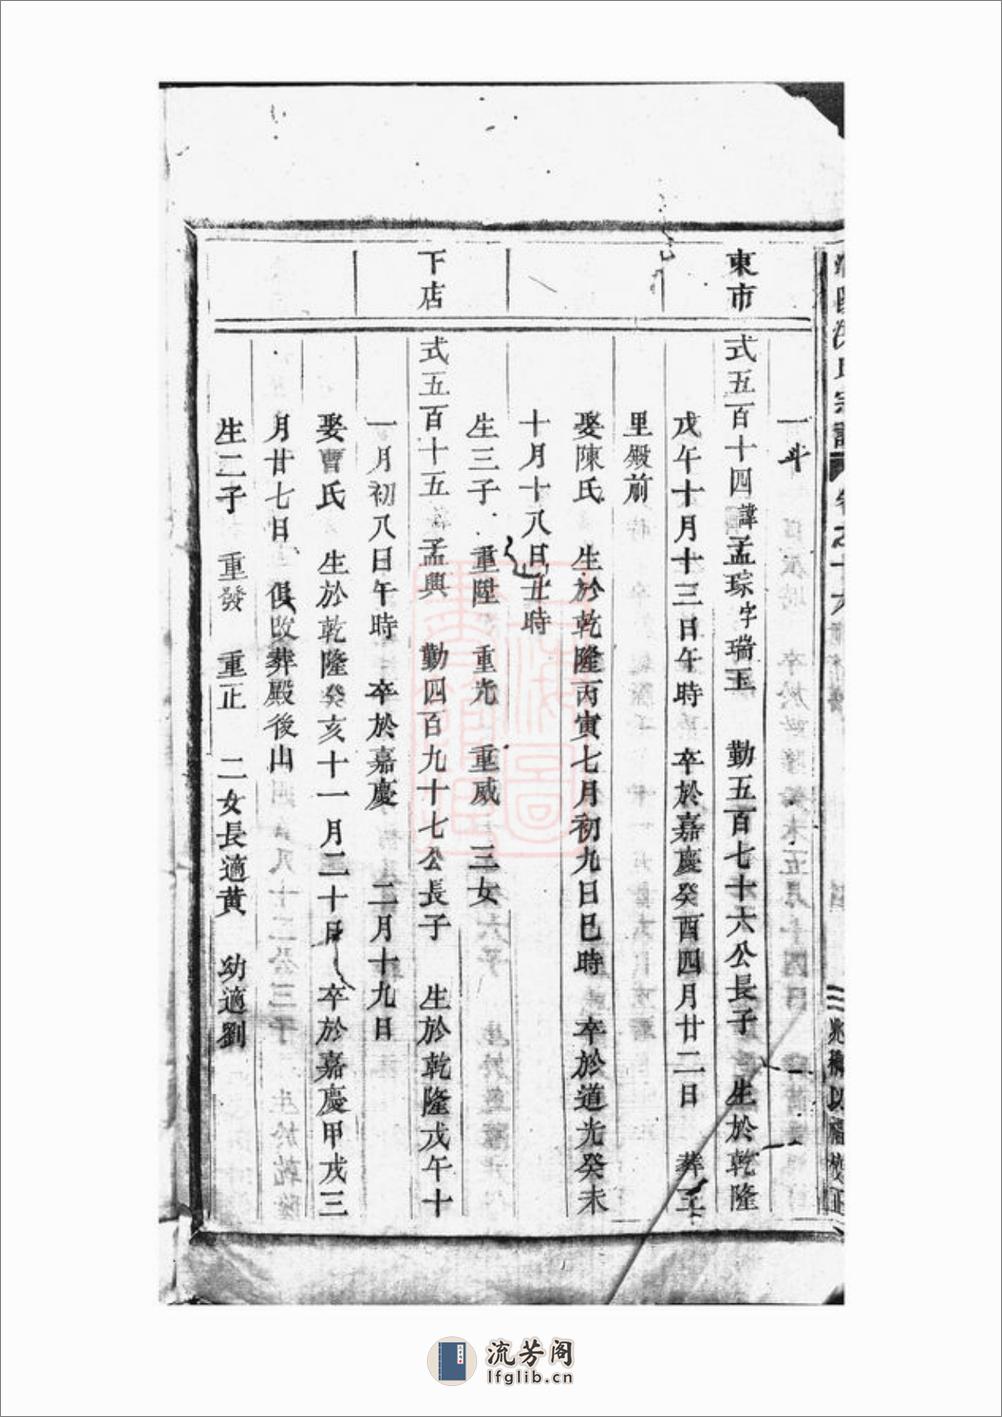 一斗
東市
式五百十四諱孟琮字瑞玉 勤五百七十六公長子 生於乾隆
戊午十月十三日午時 卒於嘉慶癸酉四月廿二日 葬
里殿前
娶陳氏 生於乾隆丙寅七月初九日巳時 卒於道光癸未
十月十八日丑時
生三子 重陞 重光 重威 三女
下店
式五百十五孟興 勤四百九十七公長子 生於乾隆戊午十
一月初八日午時 卒於嘉慶 二月十九日
娶曹氏 生於乾隆癸亥十一月二十日 卒於嘉慶甲戌三
月廿七日 俱改葬殿後山
生二子 重發 重正 二女長適黃 幼適劉
流芳阁
lfglib.cn